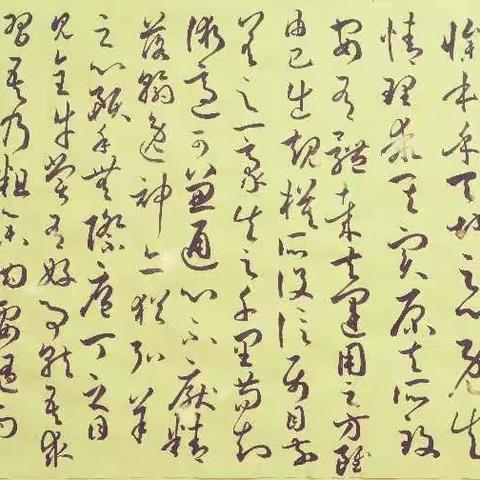 慘本乎天地之心既失
情理乖其實原夫所致
安有體哉夫運用之方雖
由己出規模所設信屬目前
差之一豪失之千里苟知
術適可兼通心不厭精
落翰逸神亦猶弘羊
之心預乎無際庖丁之目
見全牛嘗有好事就吾求
習吾乃粗舉綱要隨而